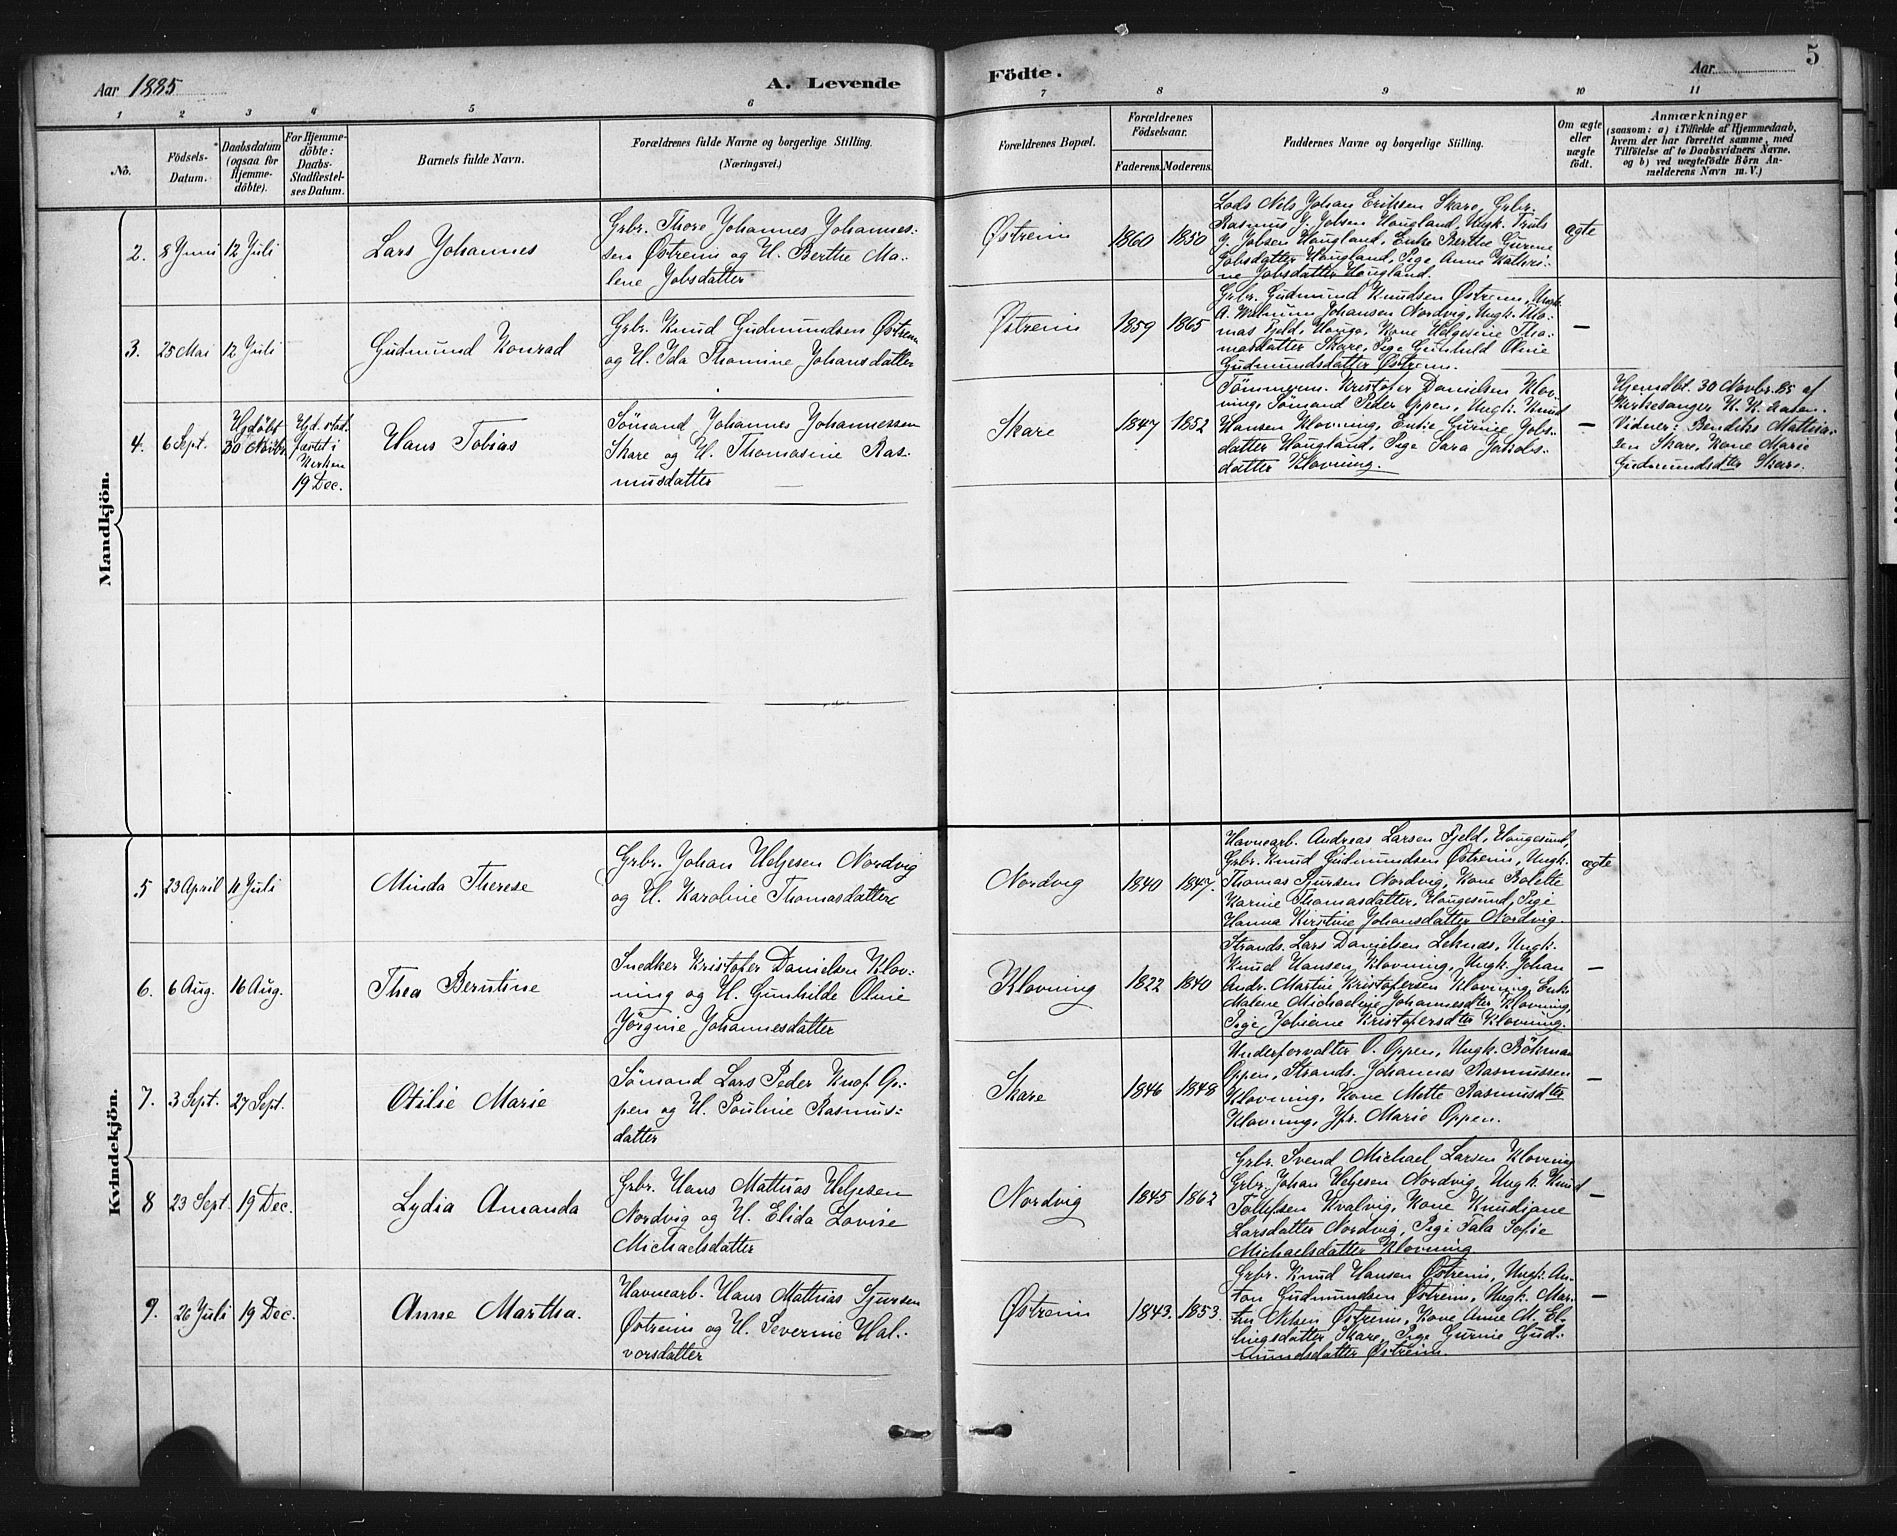 Aar 1885
A. Levende
Födte.
Aar
5
1 2 3 4 5 6 7 8 9 10 11
No.
Födsels-
Datum.
Daabsdatum
(ogsaa for
Hjemme-
döbte).
For Hjemme-
döbte:
Daabs-
Stadfæstel-
ses Datum.
Barnets fulde Navn.
Forældrenes fulde Navne og borgerlige Stilling.
(Næringsvei.)
Forældrenes Bopæl.
Forældrenes
Födselsaar.
Faderens. Moderens.
Faddernes Navne og borgerlige Stilling.
Om ægte
eller
uægte
födt.
Anmærkninger
(saasom: a) i Tilfælde af Hjemmedaab,
hvem der har forrettet samme, med
Tilföielse af to Daabsvidners Navne,
og b) ved uægtefödte Börn An-
melderens Navn m. V.)
Mandkjön.
2. 8 Juni 12 Juli
Lars Johannes
Grbr. Thore Johannes Johannes-
sen Østrem og H. Berthe Ma-
lene Jobsdatter
Østrem
1860 1850
Lods Nils Johan Eriksen Skare, Grbr.
Rasmus J. Jobsen Hougland, Ungk. Truls
J. Jobsen Hougland, Enke Berthe Gurine
Jobsdatter Hougland, Pige Anne Kathri-
ne Jobsdatter Hougland.
ægte
3. 25 Mai 12 Juli
Gudmund Konrad
Grbr. Knud Gudmundsen Østrem
og H. Ida Thomine Johansdatter
Østrem
1859 1865
Grbr. Gudmund Knudsen Østrem, Ungk.
A. Wilhelm Johansen Nordvig, Ungk. Tho-
mas Fjeld, Hougs., Kone Helgesine Tho-
masdatter Skare, Pige Gunhild Oline
Gudmundsdatter Østrem.
—
4. 6 Sept.
Hjdöbt
30 Novbr.
Hjd. stad-
fæstet i
Kirken
19 Dec.
Hans Tobias
Sømand Johannes Johannessen
Skare og H. Thomasine Ras-
musdatter
Skare
1847 1852
Tömmerm. Kristofer Danielsen Klov-
ning, Sømand Peder Oppen, Ungk. Knud
Hansen Klovning, Enke Gurine Jobs-
datter Hougland, Pige Sara Jakobs-
datter Klovning.
—
Hjemdbt. 30 Novbr. 85 af
Kirkesanger K. K. Aasen.
Vidner: Bendiks Mathia-
sen Skare, Kone Marie
Gudmundsdter Skare.
Kvindekjön.
5 23 April 11 Juli
Minda Therese
Grbr. Johan Heljesen Nordvig
og H. Karoline Thomasdatter
Nordvig
1840 1847.
Havnearb. Andreas Larsen Fjeld, Hougesund,
Grbr. Knud Gudmundsen Østrem, Ungk.
Thomas Sjursen Nordvig, Kone Bolette
Karine Thomasdatter, Hougesund, Pige
Hanna Kirstine Johansdatter Nordvig.
ægte
6. 6 Aug. 16 Aug.
Thea Berntine
Snedker Kristofer Danielsen Klov-
ning og H. Gunhilde Oline
Jörgine Johannesdatter
Klovning
1822 1840
Strands. Lars Danielsen Leknes, Ungk.
Knud Hansen Klovning, Ungk. Johan
Andr. Martin Kristofersen Klovning, Enke
Malene Michaeline Johannesdter Klovning,
Pige Jobiane Kristofersdter Klovning.
—
7. 3 Sept. 27 Sept.
Otilie Marie
Sømand Lars Peder Knof Op-
pen og H. Pouline Rasmus-
datter
Skare
1846 1848
Underforvalter O. Oppen, Ungk. Böhman
Oppen, Strands. Johannes Rasmussen
Klovning, Kone Mette Rasmusdter
Klovning, Jfr. Marie Oppen.
—
8 23 Sept. 19 Dec.
Lydia Amanda
Grbr. Hans Mathias Heljesen
Nordvig og H. Elida Lovise
Michaelsdatter
Nordvig
1845 1862
Grbr. Svend Michael Larsen Klovning
Grbr. Johan Heljesen Nordvig, Ungk. Knud
Tollefsen Kvalvig, Kone Knudiane
Larsdatter Nordvig, Pige Tala Sofie
Michaelsdatter Klovning
—
9. 26 Juli 19 Dec.
Anne Martha.
Havnearb. Hans Mathias Sjursen
Østrem og H. Severine Hal-
vorsdatter
Østrem
1843. 1853.
Grbr. Knud Hansen Østrem, Ungk. An-
ton Gudmundsen Østrem, Ungk. Mar-
tin Nilsen Østrem, Kone Anne M. El-
lingsdatter Skare, Pige Gurine Gud-
mundsdatter Østrem.
—